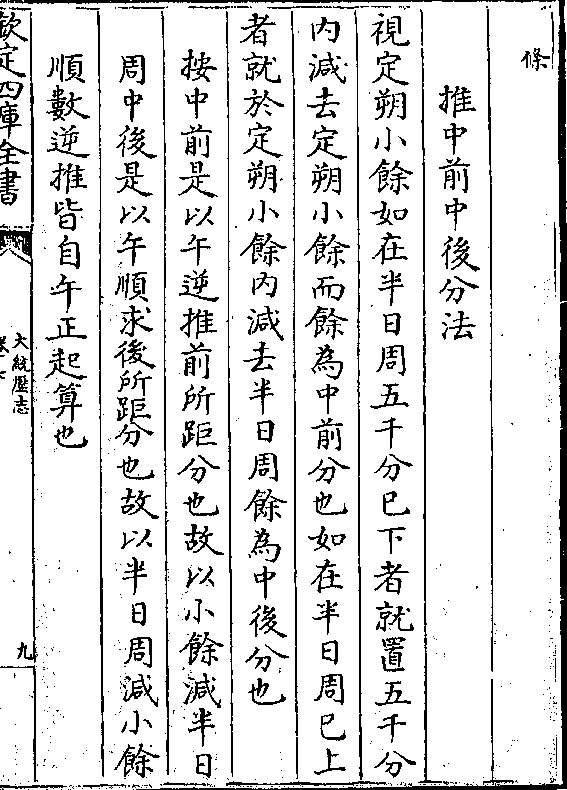 條
推中前中後分法
視定朔小餘如在半日周五千分已下者就置五千分
内減去定朔小餘而餘為中前分也如在半日周已上
者就於定朔小餘内減去半日周餘為中後分也
按中前是以午逆推前所距分也故以小餘減半日
周中後是以午順求後所距分也故以半日周減小餘
順數逆推皆自午正起算也
欽定四庫全書
大統厯志
九